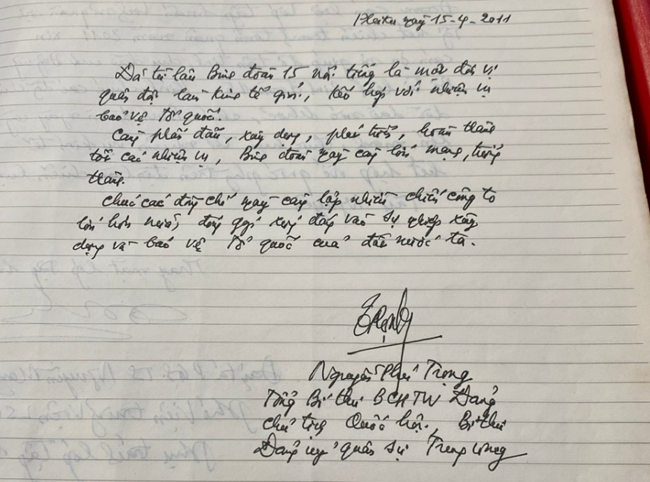 Pleiku ngày 15-4-2011
Đã từ lâu Binh đoàn 15 nổi tiếng là một đơn vị
quân đội làm kinh tế giỏi, kết hợp với nhiệm vụ
bảo vệ Tổ quốc.
Càng phấn đấu, xây dựng, phát triển, hoàn thành
tốt các nhiệm vụ, Binh đoàn ngày càng lớn mạnh, trưởng
thành.
Chúc các đồng chí ngày càng lập nhiều chiến công to
lớn hơn nữa, đóng góp xứng đáng vào sự nghiệp xây
dựng và bảo vệ Tổ quốc của đất nước ta.
Nguyễn Phú Trọng
Tổng Bí thư BCHTW Đảng
Chủ tịch Quốc hội, Bí thư
Đảng uỷ quân sự Trung ương